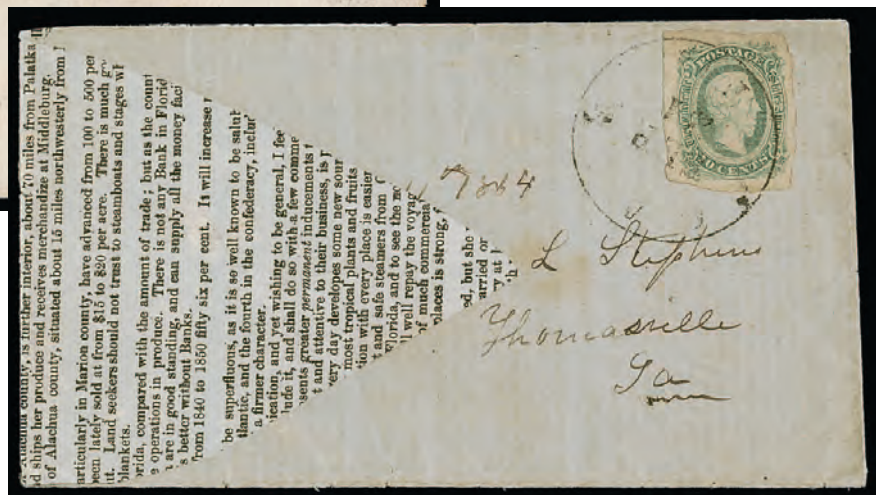 Alachua county, is further interior, about 70 miles from Palatka
d ships her produce and receives merchandize at Middleburg.
of Alachua county, situated about 15 miles northwesterly from
articularly in Marion county, have advanced from 100 to 500 per
een lately sold at from $15 to $20 per acre. There is much
nt. Land seekers should not trust to steamboats and stages
blankets.
orida, compared with the amount of trade; but as the
e operations in produce. There is not any Bank in
are in good standing, and can supply all the money
s better without Banks.
rom 1840 to 1850 fifty six per cent. It will increase
be superfluous, as it is so well known to be
tlantic, and the fourth in the confederacy,
a firmer character.
ication, and yet wishing to be general, I
lude it, and shall do so with a few
sents greater permanent inducements
t and attentive to their business, is
very day developes some new
most tropical plants and fruits
tion with every place is easier
t and safe steamers from
Florida, and to see the
l well repay the
of much commercial
places is strong,
ed, but she
arried or
ry at
POSTAGE
CENTS
L Stephens
Thomasville
Ga